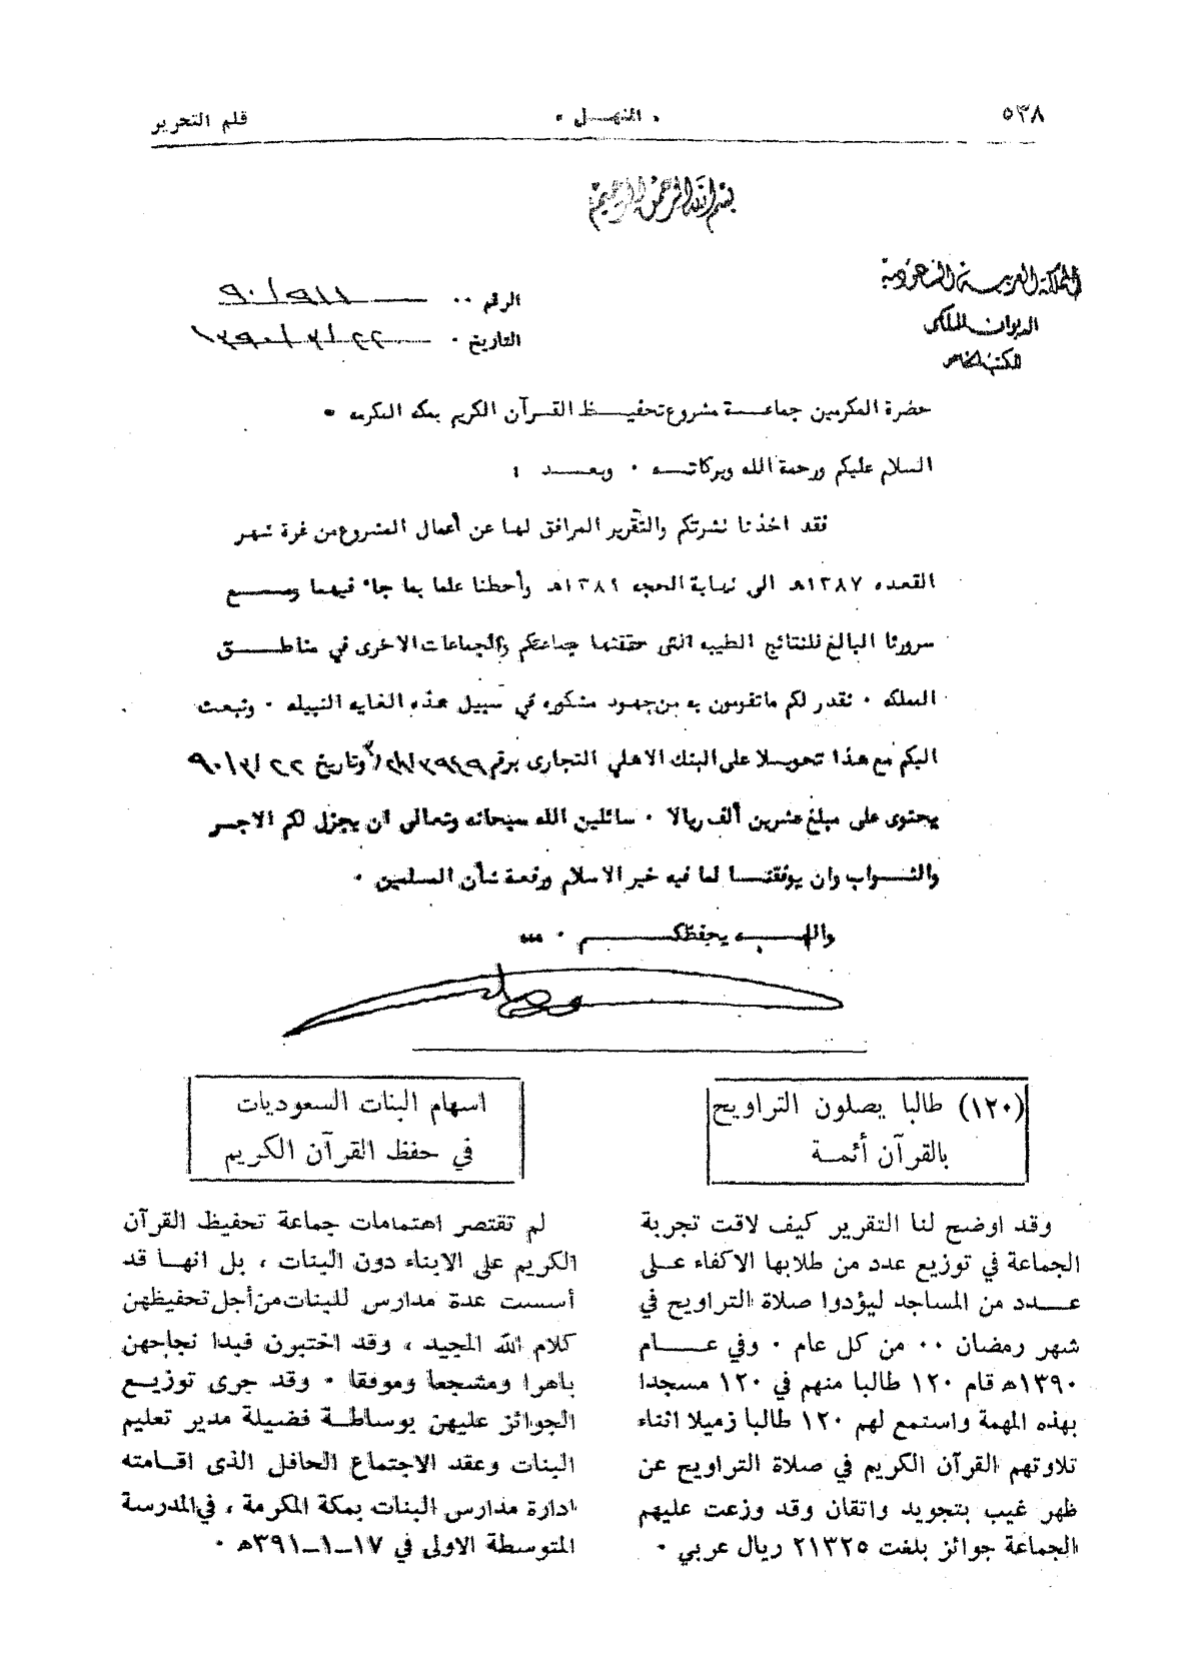 ٥٣٨
« المنهــل »
قلم التحرير
بسم الله الرحمن الرحيم
المملكة العربية السعودية
الديوان الملكي
المكتب الخاص
الرقم ٠٠ ٩٠/٩١١
التاريخ ٠ ١٣٩٠/٣/٢٢
حضرة المكرمين جماعــة مشروع تحفيــظ القــرآن الكريم بمكه المكرمه ٠
السلام عليكم ورحمة الله وبركاتــه ٠ وبعــد :
فقد اخذنا نشرتكم والتقرير المرافق لها عن أعمال المشروع من غرة شهر
القعده ١٣٨٧هـ الى نهاية الحجه ١٣٨٩هـ وأحطنا علما بما جاء فيهما ومـــع
سرورنا البالغ للنتائج الطيبه التى حققتها جماعتكم والجماعات الاخرى في مناطــق
المملكه ٠ نقدر لكم ماتقومون به من جهود مشكوره في سبيل هذه الغايه النبيله ٠ ونبعث
اليكم مع هذا تحويــلا على البنك الاهلي التجارى برقم وتاريخ ٩٠/٣/٢٢
يحتوى على مبلغ عشرين ألف ريالا ٠ سائلين الله سبحانه وتعالى ان يجزل لكم الاجــر
والثــواب وان يوفقنــا لما فيه خير الاسلام ورفعة شأن المسلمين ٠
واللــه يحفظكــــم ٠ ٠٠٠
(١٢٠) طالبا يصلون التراويح
بالقرآن أئمــة
وقد اوضح لنا التقرير كيف لاقت تجربة
الجماعة في توزيع عدد من طلابها الاكفاء علــى
عــدد من المساجد ليؤدوا صلاة التراويح في
شهر رمضان ٠٠ من كل عام ٠ وفي عــــام
١٣٩٠هـ قام ١٢٠ طالبا منهم في ١٢٠ مسجدا
بهذه المهمة واستمع لهم ١٢٠ طالبا زميلا اثناء
تلاوتهم القرآن الكريم في صلاة التراويح عن
ظهر غيب بتجويد واتقان وقد وزعت عليهم
الجماعة جوائز بلغت ٢١٣٢٥ ريال عربي ٠
اسهام البنات السعوديات
في حفظ القرآن الكريم
لم تقتصر اهتمامات جماعة تحفيظ القرآن
الكريم على الابناء دون البنات ، بل انهــا قد
أسست عدة مدارس للبنات من أجل تحفيظهن
كلام الله المجيد ، وقد اختبرن فبدا نجاحهن
باهرا ومشجعا وموفقا ٠ وقد جرى توزيــع
الجوائز عليهن بوساطــة فضيلة مدير تعليم
البنات وعقد الاجتماع الحافل الذى اقــامته
ادارة مدارس البنات بمكة المكرمة ، في المدرسة
المتوسطة الاولى في ١٧ــ١ــ٣٩١هـ ٠